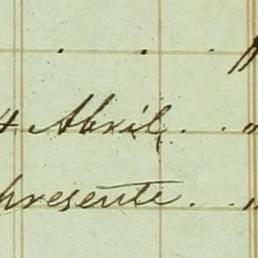 . . "
4 Abril. . "
presente. . "